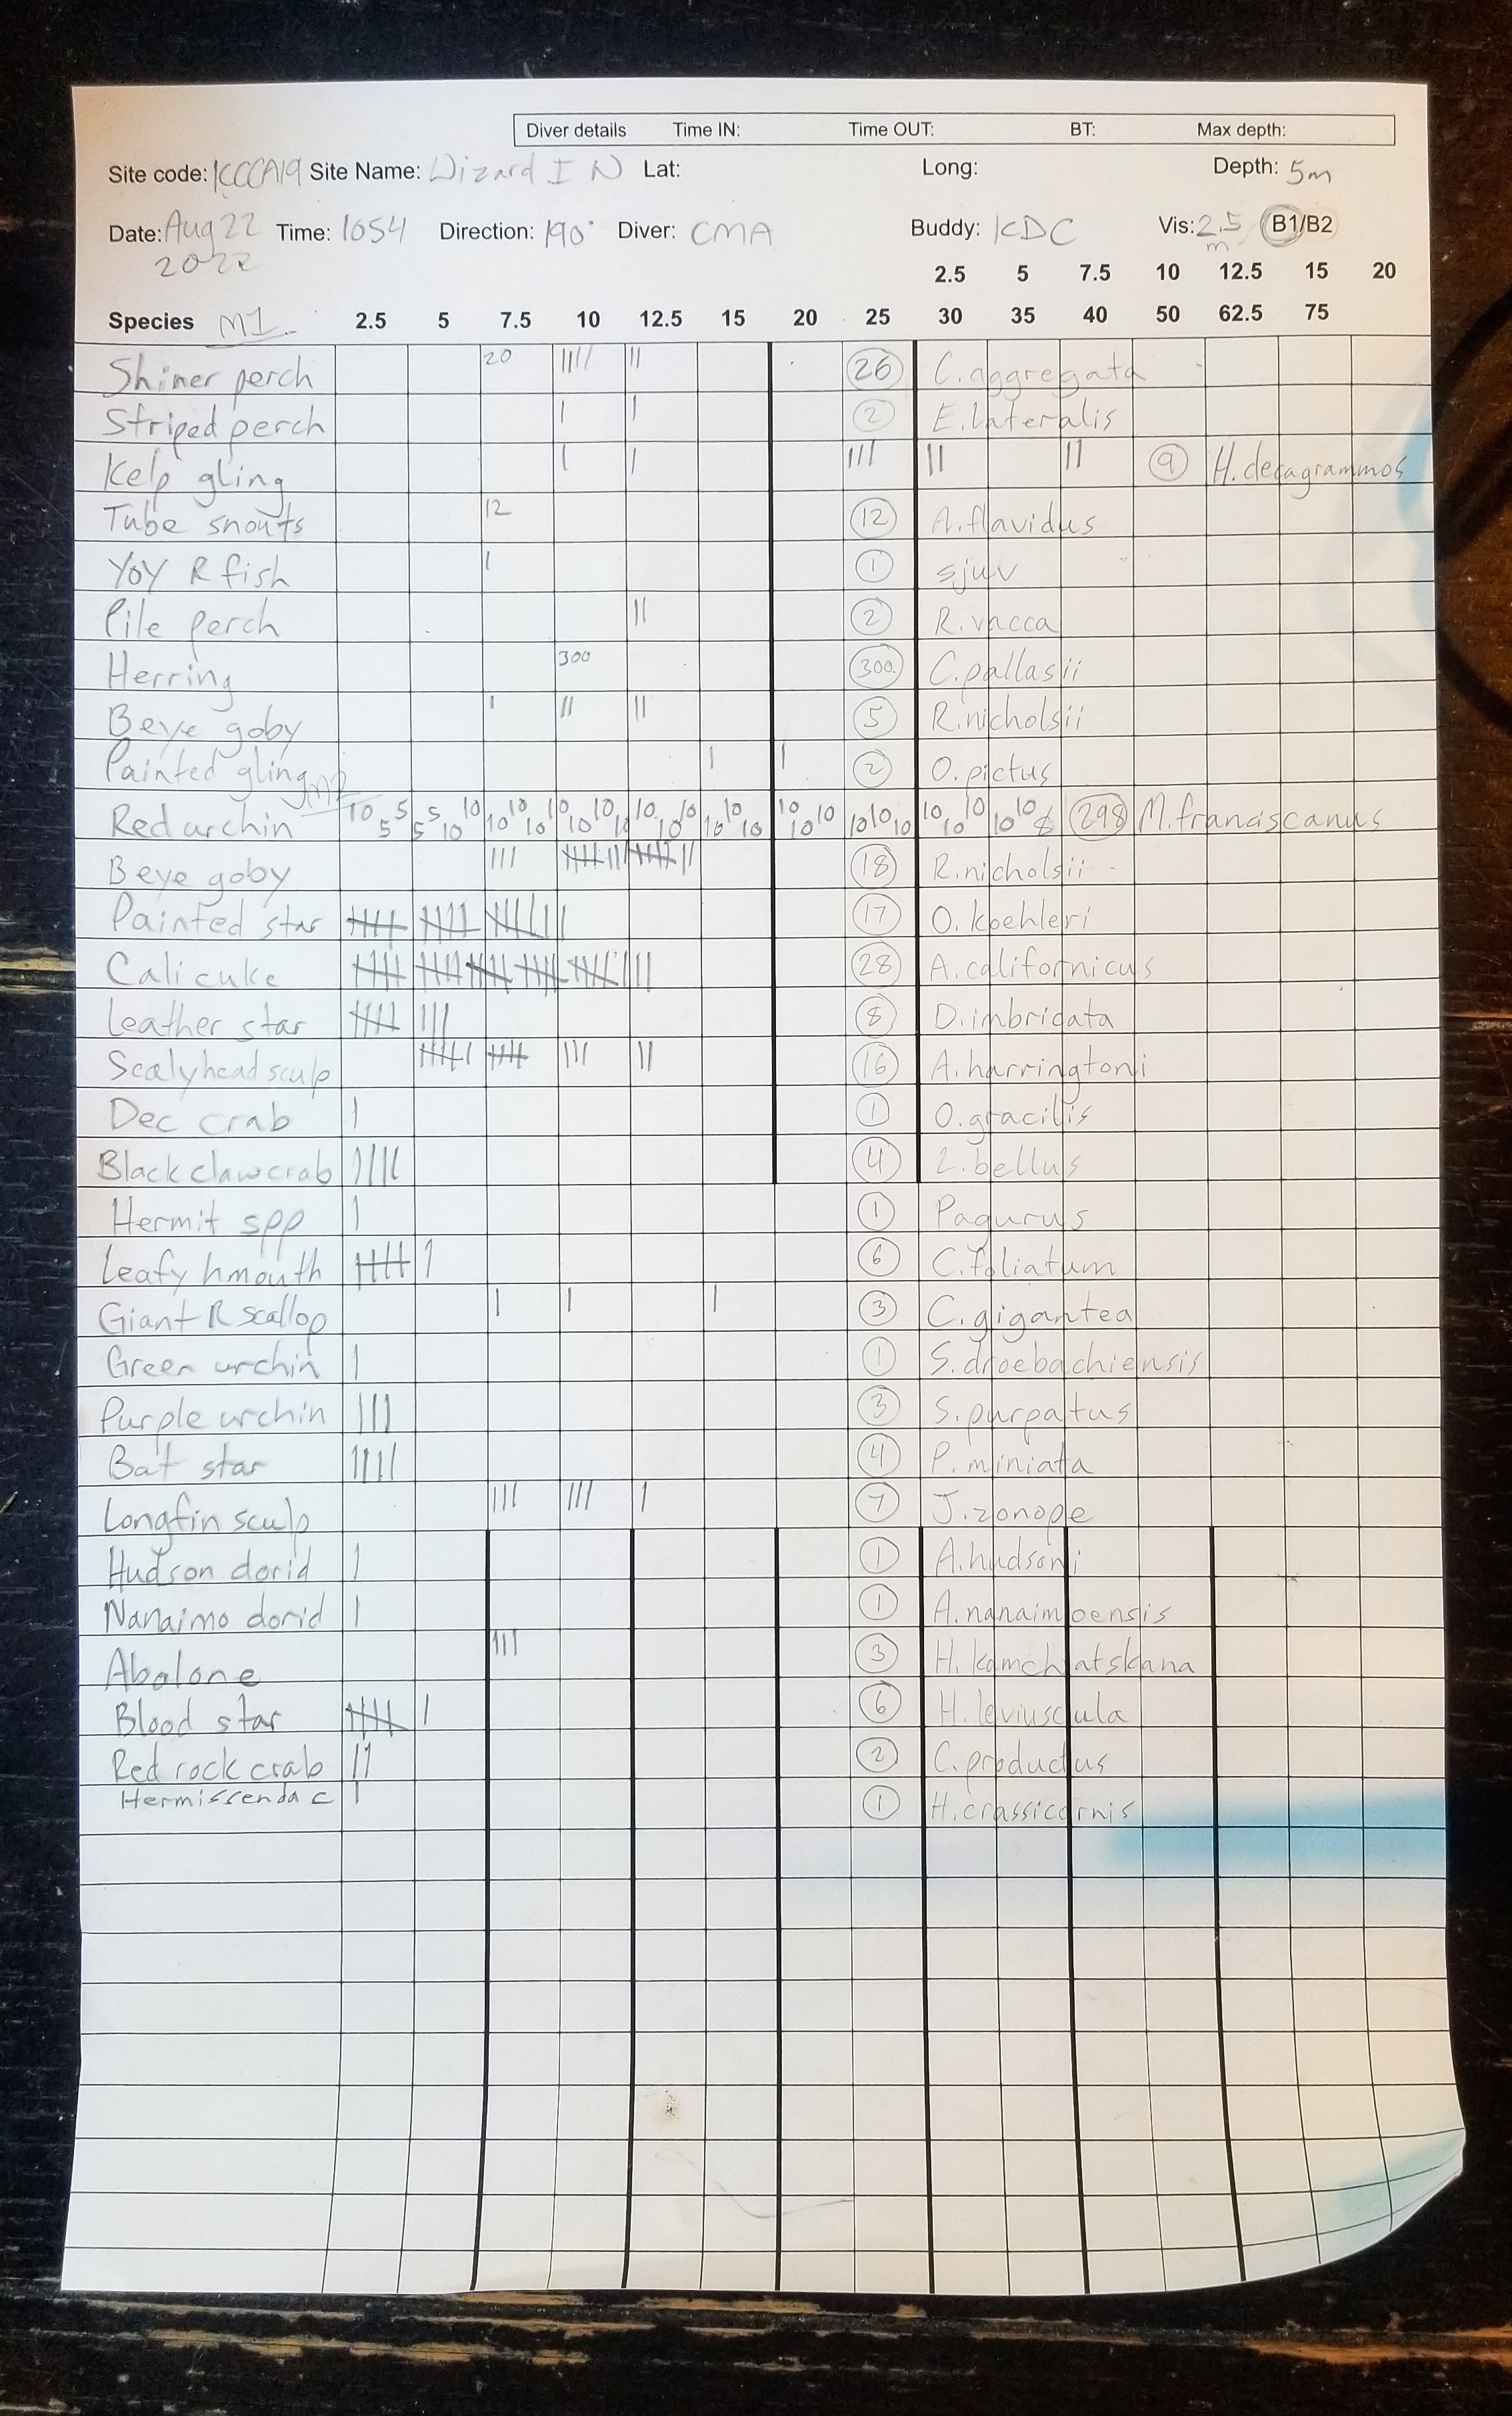 Diver details Time IN: Time OUT: BT: Max depth:
Site code: KCCA19 Site Name: Wizard I N Lat: Long: Depth: 5m
Date: Aug 22 Time: 1054 Direction: 190° Diver: CMA Buddy: KDC Vis: 2.5 B1/B2
2022 m
2.5 5 7.5 10 12.5 15 20
Species M1 2.5 5 7.5 10 12.5 15 20 25 30 35 40 50 62.5 75
Shiner perch 20 |||| || 26 C.aggregata
Striped perch | | 2 E.lateralis
Kelp gling | | ||| || || 9 H.decagrammos
Tube snouts 12 12 A.flavidus
YOY R fish | 1 sjuv
Pile perch || 2 R.vacca
Herring 300 300. C.pallasii
Beye goby | || || 5 R.nicholsii
Painted gling | | 2 O.pictus
M2
Red urchin 10 5 5 5 5 10 10 10 10 10 10 10 10 10 10 10 10 10 10 10 10 10 10 10 10 10 10 10 10 10 10 10 8 298 M.franciscanus
Beye goby ||| |||| || |||| || 18 R.nicholsii
Painted star |||| |||| |||| || 17 O.koehleri
Cali cuke |||| |||| |||| |||| |||| ||| 28 A.californicus
Leather star |||| ||| 8 D.imbricata
Scalyhead sculp |||| | |||| ||| || 16 A.harringtoni
Dec crab | 1 O.gracilis
Black claw crab |||| 4 L.bellus
Hermit spp | 1 Pagurus
Leafy hmouth |||| | 6 C.foliatum
Giant R scallop | | | 3 C.gigantea
Green urchin | 1 S.droebachiensis
Purple urchin ||| 3 S.purpatus
Bat star |||| 4 P.miniata
Longfin sculp ||| ||| | 7 J.zonope
Hudson dorid | 1 A.hudsoni
Nanaimo dorid | 1 A.nanaimoensis
Abalone ||| 3 H.kamchatskana
Blood star |||| | 6 H.leviuscula
Red rock crab || 2 C.productus
Hermissenda c | 1 H.crassicornis